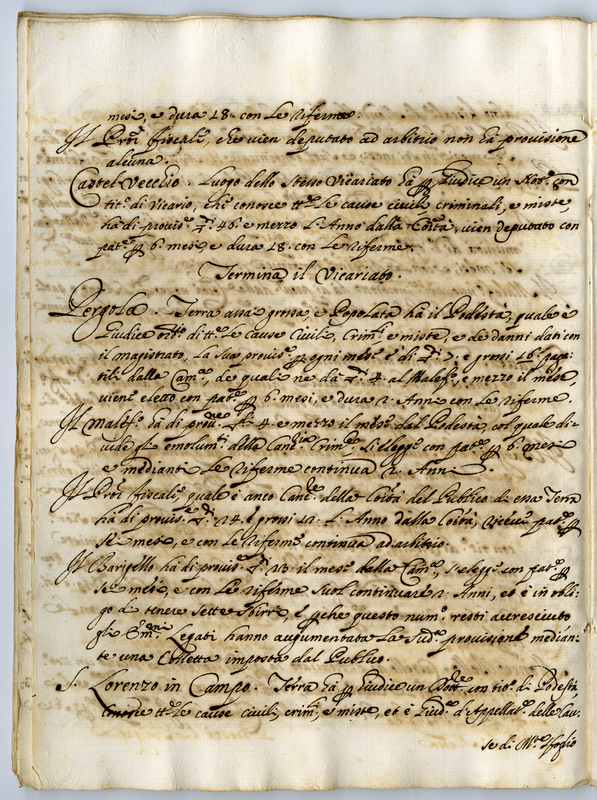 mesi, e dura 18. con le riferme.
Il Pròr fiscale, che vien deputato ad arbitrio non hà provisione
alcuna.
Castel Vecchio. Luogo dello stesso Vicariato hà p Giudice un Not.º con
tit.º di Vicario, che conosce tt.e le cause civili criminali, e miste,
hà di provis.e 46. e mezzo l'Anno dalla Com̃tà, vien deputato con
pat.e p 6. mesi e dura 18. con le riferme.
Termina il Vicariato.
Pergola. Terra assai grossa, e Popolata hà il Podestà, quale è
Giudice ord.rio di tt.e le cause Civili, Crim.li e miste, e de danni dati con
il magistrato, la sua provis.e p ogni mese è di 7. e grossi 16. paga-
bili dalla Cam.a, de quali ne dà 4 al Malef.o, e mezzo il mese,
viene eletto con pat.e p 6. mesi, e dura 2. Anni con le riferme.
Il Malef.o hà di prov.ne 4. e mezzo il mese dal Podestà, col quale di-
vide gl' emolum.ti della Canc.ria Crim.le, si elegge con pat.e p 6. mesi
e mediante le riferme continua 2. Anni.
Il Pròr fiscale, quale è anco Canc.re della Com̃tà del Publico di essa Terra
hà di provis.e 24. e grossi 12. l'Anno dalla Com̃tà, riceve pat.e p
sei mesi, e con le riferme continua ad arbitrio.
Il Barigello hà di provis.e 23 il mese dalla Cam.a, si elegge con pat.e p
sei mesi, e con le riferme suol continuare 2. Anni, et è in obli-
go di tenere sette sbirri, e p che questo num.o resti accresciuto
gl' Em̃.mi Legati hanno augumentata la sud.a provisione median-
te una Colletta imposta dal Publico.
S. Lorenzo in Campo. Terra hà p Giudice un Dott.re con tit.o di Podestà
conosce tt.e le cause civili, crim.li, e miste, et è Giud.e d'Appellat.ne delle Cau-
se di